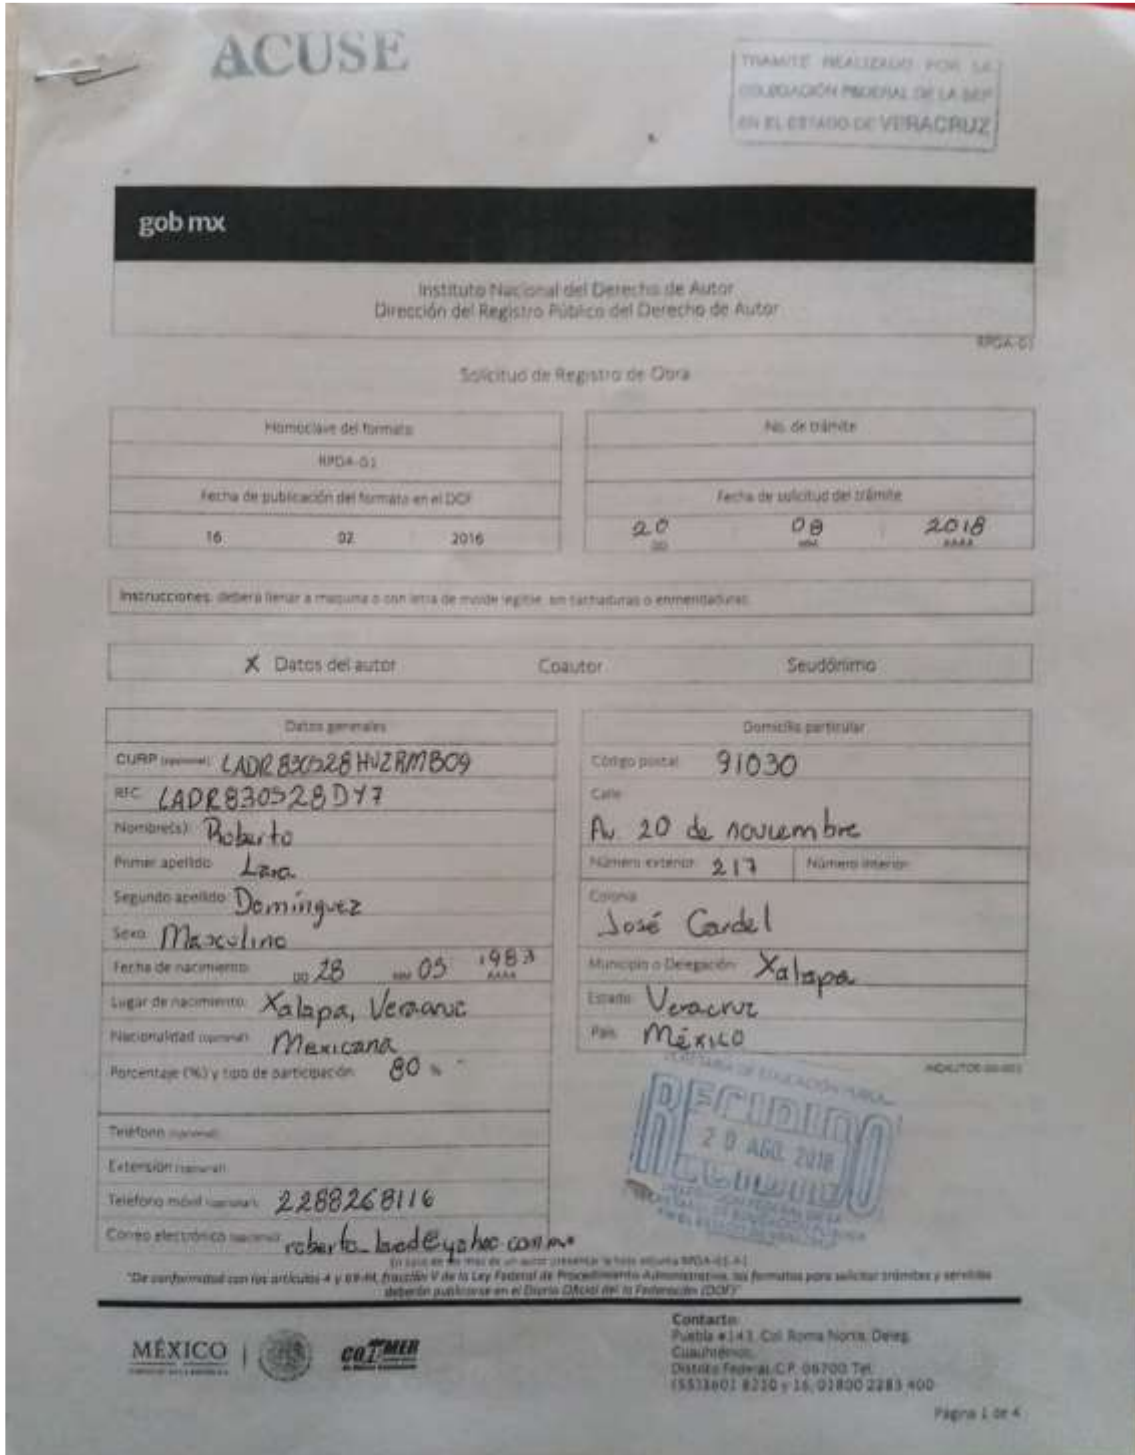 ACUSE
TRAMITE REALIZADO POR LA
DELEGACIÓN FEDERAL DE LA SEP
EN EL ESTADO DE VERACRUZ
gob mx
Instituto Nacional del Derecho de Autor
Dirección del Registro Público del Derecho de Autor
RPDA-01
Solicitud de Registro de Obra
Homoclave del formato
No. de trámite
RPDA-01
Fecha de publicación del formato en el DOF
Fecha de solicitud del trámite
16 02 2016
20 08 2018
DD MM AAAA
Instrucciones: deberá llenar a maquina o con letra de molde legible, sin tachaduras o enmendaduras.
X Datos del autor Coautor Seudónimo
Datos generales
CURP (opcional): LADR830528HVZRMB09
RFC: LADR830528DY7
Nombre(s): Roberto
Primer apellido: Lara
Segundo apellido: Domínguez
Sexo: Masculino
Fecha de nacimiento: DD 28 MM 05 1983 AAAA
Lugar de nacimiento: Xalapa, Veracruz
Nacionalidad (opcional): Mexicana
Porcentaje (%) y tipo de participación: 80 %
Teléfono (opcional):
Extensión (opcional):
Teléfono móvil (opcional): 2288268116
Correo electrónico (opcional):
Domicilio particular
Código postal: 91030
Calle:
Av. 20 de noviembre
Número exterior: 217 Número interior:
Colonia:
José Cardel
Municipio o Delegación: Xalapa
Estado: Veracruz
País: México
SECRETARIA DE EDUCACIÓN PUBLICA
RECIBIDO
20 AGO. 2018
En caso de ser más de un autor presentar la hoja adjunta RPDA-01-A1
"De conformidad con los artículos 4 y 69-M, fracción V de la Ley Federal de Procedimiento Administrativo, los formatos para solicitar trámites y servicios
deberán publicarse en el Diario Oficial de la Federación (DOF)"
MÉXICO
COFEMER
Contacto:
Puebla #143, Col. Roma Norte, Deleg.
Cuauhtémoc,
Distrito Federal, C.P. 06700. Tel.
(55)3601 8210 y 16, 01800 2283 400
Página 1 de 4